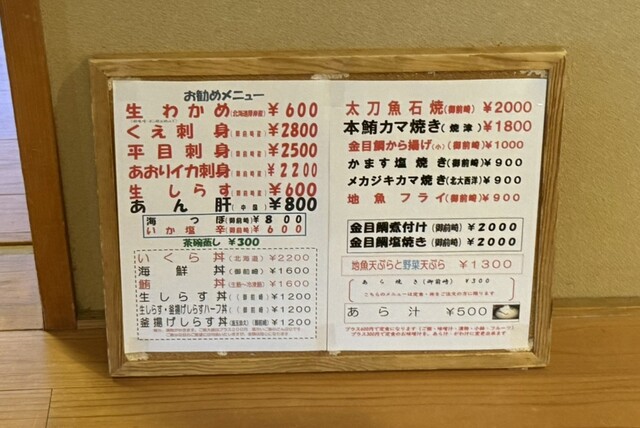 お勧めメニュー
生わかめ ¥600
くえ刺身(御前崎産)¥2800
平目刺身(御前崎産)¥2500
あおりイカ刺身(御前崎産)¥2200
生しらす ¥600
あん肝 ¥800
海つぼ(御前崎)¥800
いか塩辛(御前崎)¥600
茶碗蒸し ¥300
いくら丼(北海道)¥2200
海鮮丼(御前崎)¥1600
鮪丼 ¥1600
生しらす丼(御前崎)¥1200
生しらす・釜揚げしらすハーフ丼(御前崎)¥1200
釜揚げしらす丼(御前崎)¥1200
太刀魚石焼(御前崎)¥2000
本鮪カマ焼き(焼津)¥1800
金目鯛から揚げ(小)(御前崎)¥1000
かます塩焼き(御前崎)¥900
メカジキカマ焼き(北大西洋)¥900
地魚フライ(御前崎)¥900
金目鯛煮付け(御前崎)¥2000
金目鯛塩焼き(御前崎)¥2000
地魚天ぷらと野菜天ぷら ¥1300
あら焼き(御前崎)¥300
あら汁 ¥500